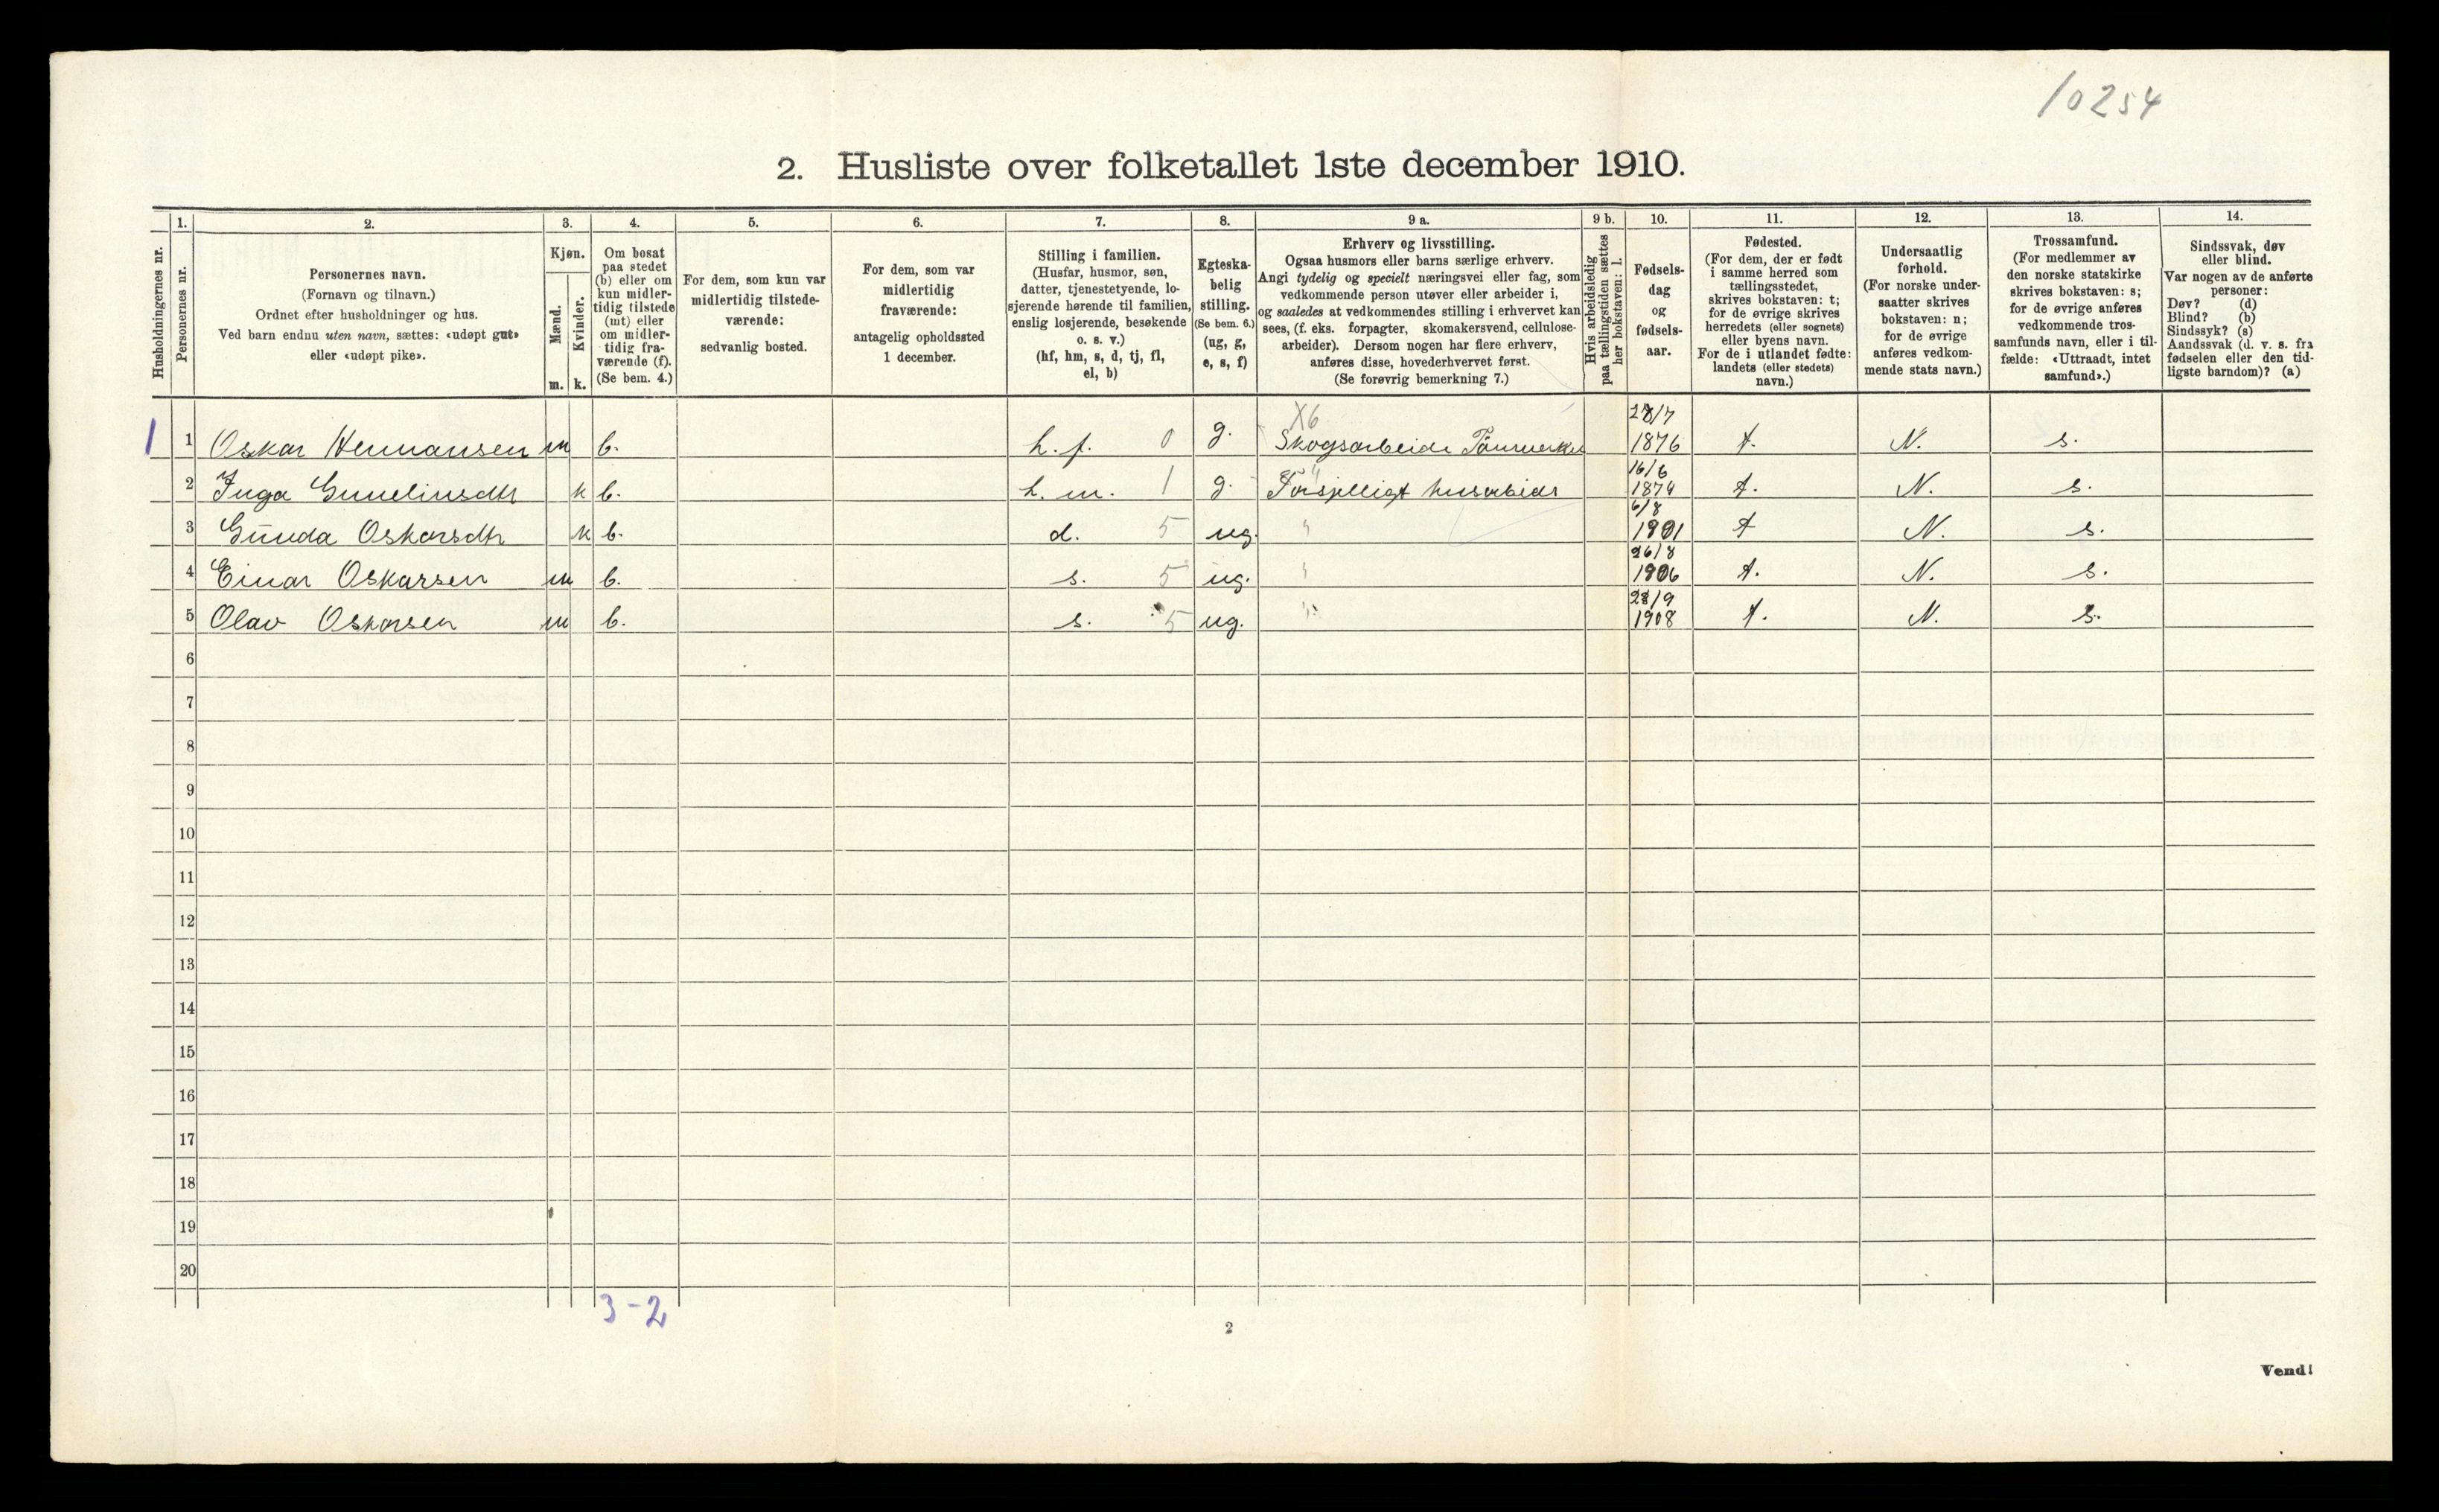 10254
2. Husliste over folketallet 1ste december 1910.
Husholdningernes nr.
1.
Personernes nr.
2.
Personernes navn.
(Fornavn og tilnavn.)
Ordnet efter husholdninger og hus.
Ved barn endnu uten navn, sættes: «udøpt gut»
eller «udøpt pike».
3.
Kjøn.
Mænd.
Kvinder.
m. k.
4.
Om bosat
paa stedet
(b) eller om
kun midler-
tidig tilstede
(mt) eller
om midler-
tidig fra-
værende (f).
(Se bem. 4.)
5.
For dem, som kun var
midlertidig tilstede-
værende:
sedvanlig bosted.
6.
For dem, som var
midlertidig
fraværende:
antagelig opholdssted
1 december.
7.
Stilling i familien.
(Husfar, husmor, søn,
datter, tjenestetyende, lo-
sjerende hørende til familien,
enslig losjerende, besøkende
o. s. v.)
(hf, hm, s, d, tj, fl,
el, b)
8.
Egteska-
belig
stilling.
(Se bem. 6.)
(ug, g,
e, s, f)
9 a.
Erhverv og livsstilling.
Ogsaa husmors eller barns særlige erhverv.
Angi tydelig og specielt næringsvei eller fag, som
vedkommende person utøver eller arbeider i,
og saaledes at vedkommendes stilling i erhvervet kan
sees, (f. eks. forpagter, skomakersvend, cellulose-
arbeider). Dersom nogen har flere erhverv,
anføres disse, hovederhvervet først.
(Se forøvrig bemerkning 7.)
9 b.
Hvis arbeidsledig
paa tællingstiden sættes
her bokstaven: l.
10.
Fødsels-
dag
og
fødsels-
aar.
11.
Fødested.
(For dem, der er født
i samme herred som
tællingsstedet,
skrives bokstaven: t;
for de øvrige skrives
herredets (eller sognets)
eller byens navn.
For de i utlandet fødte:
landets (eller stedets)
navn.)
12.
Undersaatlig
forhold.
(For norske under-
saatter skrives
bokstaven: n;
for de øvrige
anføres vedkom-
mende stats navn.)
13.
Trossamfund.
(For medlemmer av
den norske statskirke
skrives bokstaven: s;
for de øvrige anføres
vedkommende tros-
samfunds navn, eller i til-
fælde: «Uttraadt, intet
samfund».)
14.
Sindssvak, døv
eller blind.
Var nogen av de anførte
personer:
Døv? (d)
Blind? (b)
Sindssyk? (s)
Aandssvak (d. v. s. fra
fødselen eller den tid-
ligste barndom)? (a)
X6 28/7
1 1 Oskar Hermansen m b. h. f. 0 g. Skogsarbeide 1876 t. N. s.
16/6
2 Inga k b. h. m. 1 g. 1874 t. N. s.
6/8
3 Gunda Oskarsdtr k b. d. 5 ug. " 1901 t N. s.
26/8
4 Einar Oskarsen m b. s. 5 ug. " 1906 t. N. s.
28/9
5 Olav Oskarsen m b. s. 5 ug. " 1908 t. N. s.
6
7
8
9
10
11
12
13
14
15
16
17
18
19
20
3-2
2
Vend!